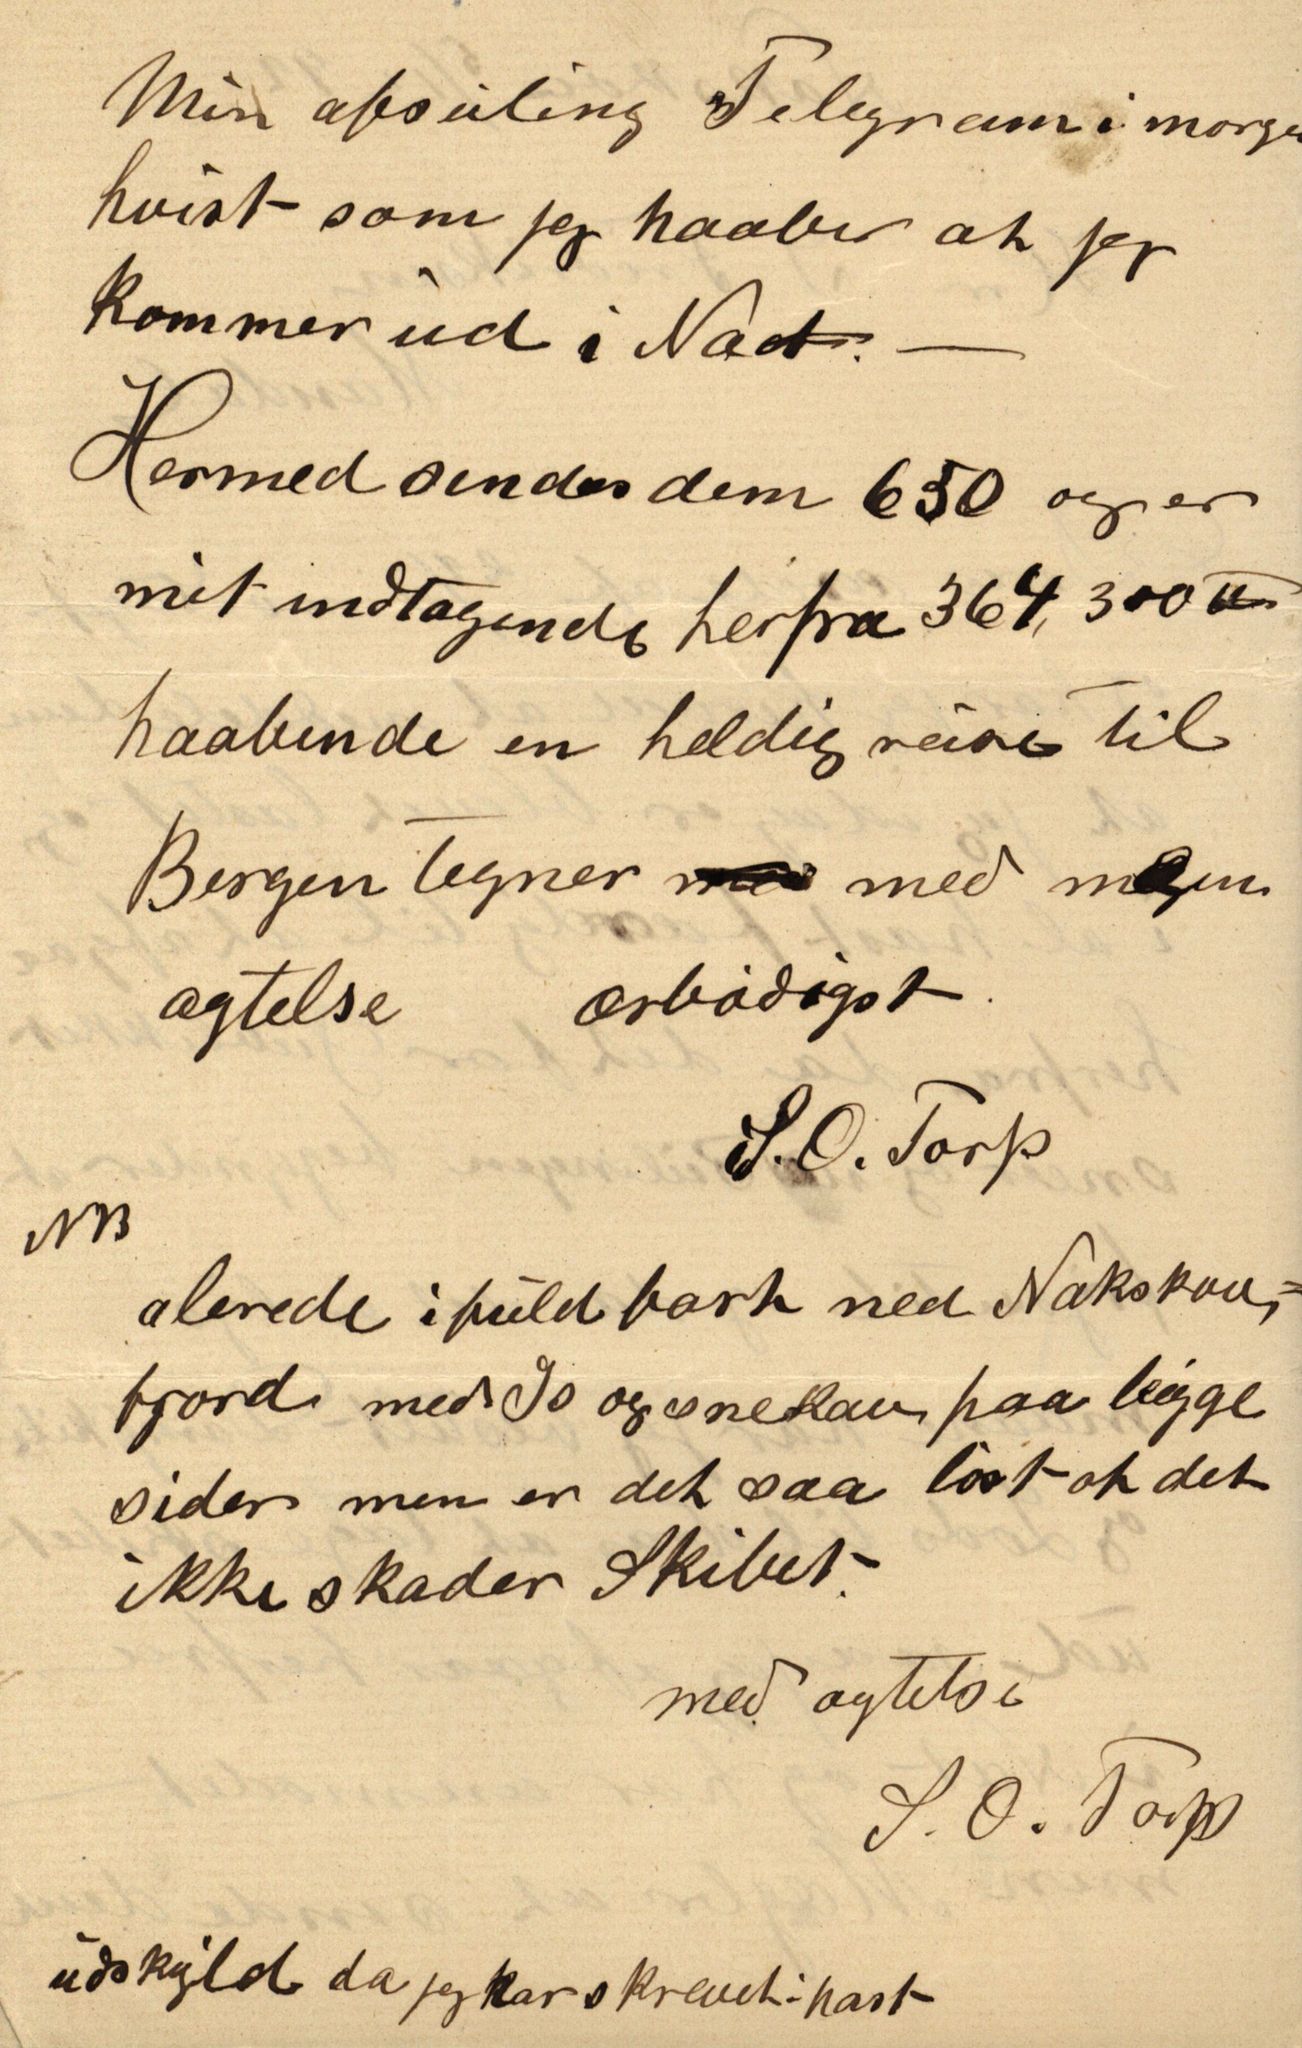 Min afseiling Telegram i morgen
hvist som jeg haaber at jeg
kommer ud i Nat. —
Hermed sendes dem 650 og er
mit indtagende herfra 364,300 ℔
haabende en heldig reise til
Bergen tegner med megen
agtelse ærbødigst.
S. O. Torp
NB
alerede i fuld fart ned Nakskou,=
fjord med Is og snekau paa begge
sider men er det saa löst at det
ikke skader Skibet.
med agtelse
S. O. Torp
udskyld da jeg har skrevet i hast